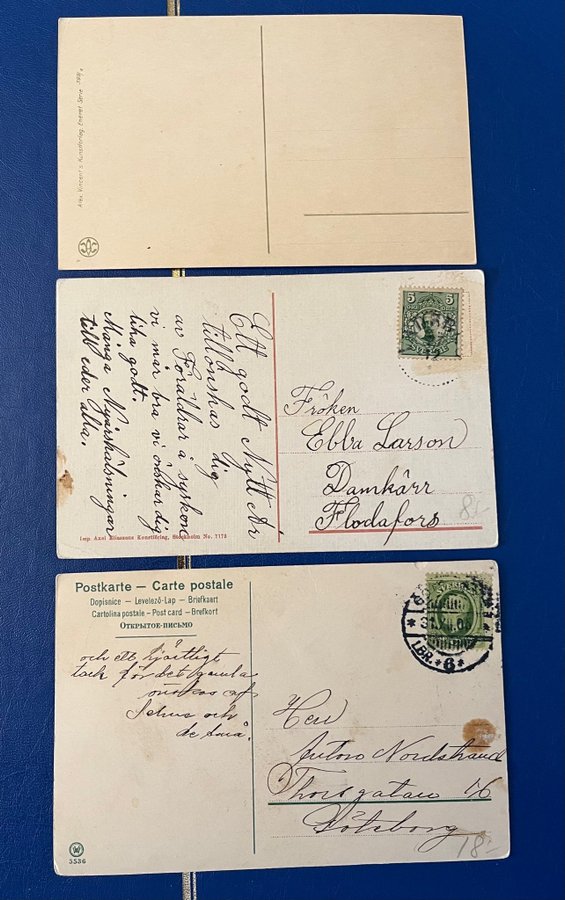 Alex. Vincent's Kunstverlag Enamel Serie
5 5
Ett godt Nytt År
tillönskas dig
av Föräldrar å syskon
vi mår bra vi önskar dig
lika godt.
Många Nyårshälsningar
till eder alla.
Fröken
Ebba Larson
Damkärr
Flodafors
8:-
Imp. Axel Eliassons Konstförlag, Stockholm No. 7173
Postkarte — Carte postale
Dopisnice — Levelező-Lap — Briefkaart
Cartolina postale — Post card — Brefkort
ОТКРЫТОЕ ПИСЬМО
och ett hjärtligt
tack för det gamla
önskas af
och
de små.
31.XII.06
LBR. 6
Herr
Anton Nordstrand
Thorsgatan 16
Göteborg
18:-
5536